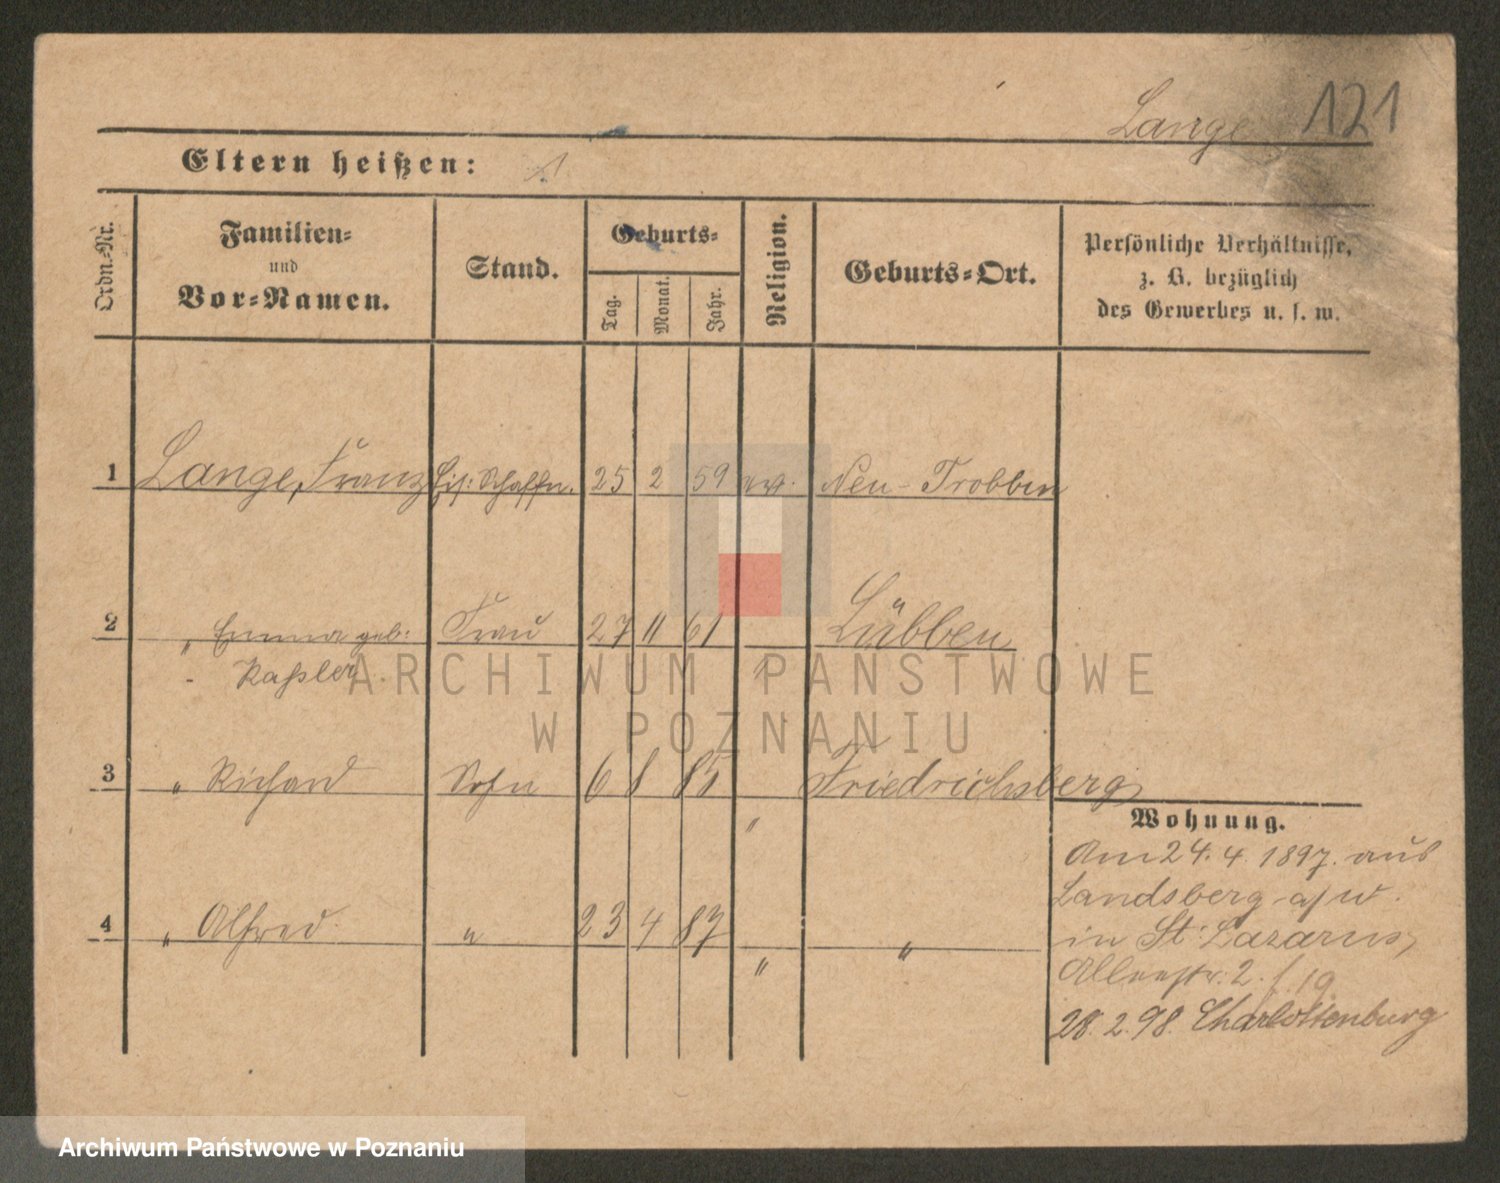 Lange 121
Eltern heißen:
Ordn.-Nr. Familien- und Vor-Namen. Stand. Geburts- Tag. Monat. Jahr. Religion. Geburts-Ort. Persönliche Verhältnisse, z. B. bezüglich des Gewerbes u. s. w.
1 Lange, Franz Eis: Schaffn. 25 2 59 ev. Neu-Trebbin
2 " Emma geb: Frau 27 11 61 " Lübben
- Kaßler
3 " Richard Sohn 6 8 85 " Friedrichsberg
4 " Alfred " 23 4 87 " "
Wohnung.
Am 24. 4. 1897. aus
Landsberg a/W.
in St. Lazarus,
Alleestr. 2. f. 19.
28. 2. 98. Charlottenburg
ARCHIWUM PAŃSTWOWE
W POZNANIU
Archiwum Państwowe w Poznaniu